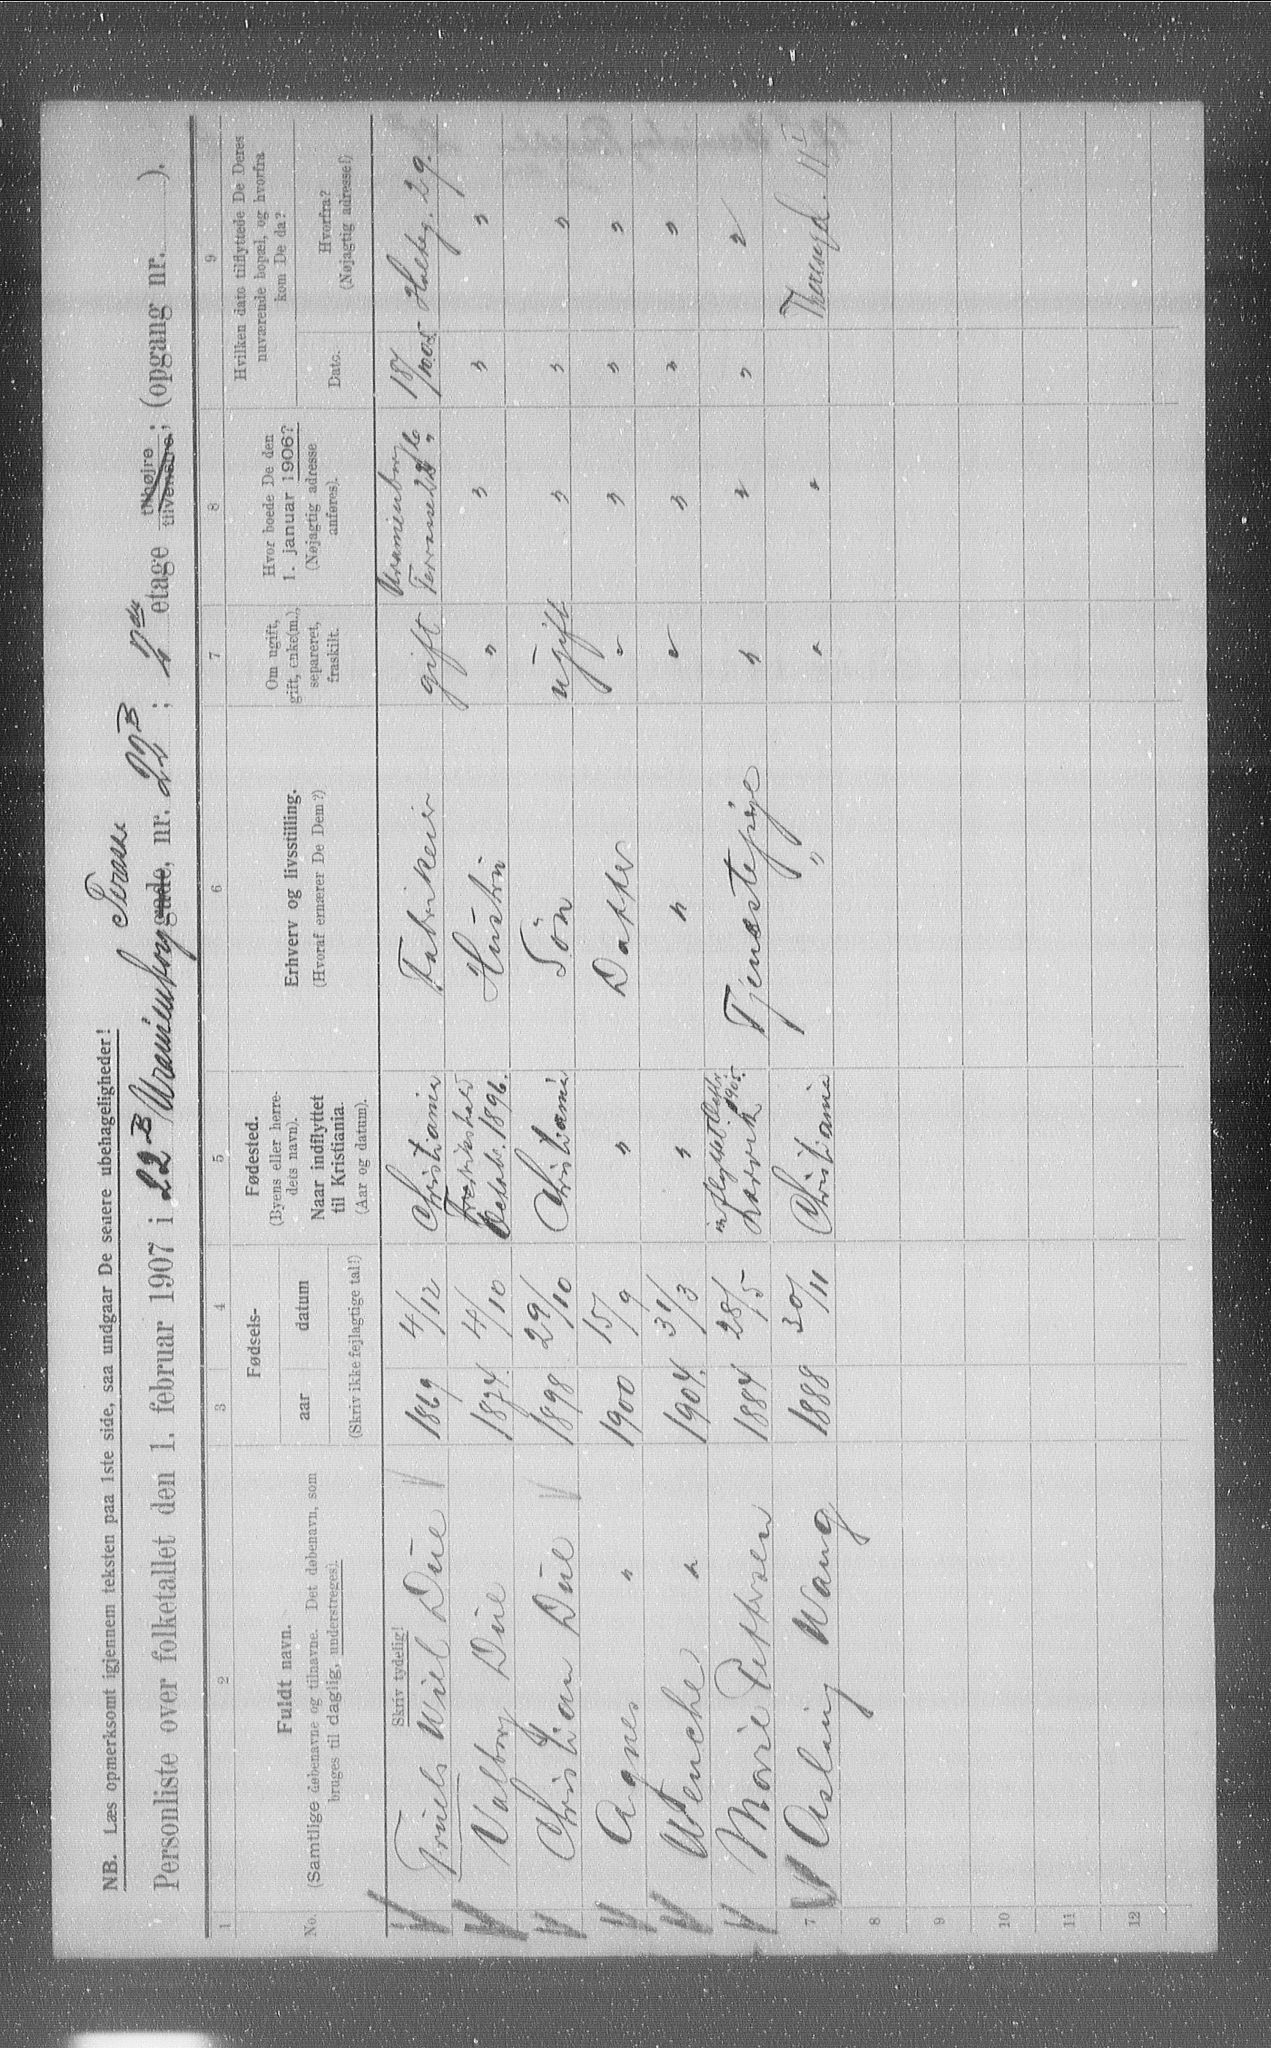 NB. Læs opmerksomt igjennem teksten paa 1ste side, saa undgaar De senere ubehageligheder!
Terasse
Personliste over folketallet den 1. februar 1907 i 22B Uranienborg gade, nr. 22B; 2 etage tilhøjre tilvenstre; (opgang nr. ).
1 2 3 4 5 6 7 8 9
No.
Fuldt navn.
(Samtlige døbenavne og tilnavne. Det døbenavn, som
bruges til daglig, understreges).
Fødsels-
aar datum
(Skriv ikke fejlagtige tal!)
Fødested.
(Byens eller herre-
dets navn).
Naar indflyttet
til Kristiania.
(Aar og datum).
Erhverv og livsstilling.
(Hvoraf ernærer De Dem?)
Om ugift,
gift, enke(m.),
separeret,
fraskilt.
Hvor boede De den
1. januar 1906?
(Nøjagtig adresse
anføres).
Hvilken dato tilflyttede De Deres
nuværende bopæl, og hvorfra
kom De da?
Dato.
Hvorfra?
(Nøjagtig adresse!)
Skriv tydelig!
Truels Wiel Due 1869 4/12 Christiania Fabrikeier gift Uranienborg Terrasse 22 18/10 05 Holbeg. 29.
Valborg Due 1874. 4/10 Fredrikshald Octob. 1896. Hustru " " " "
Christian Due 1898 29/10 Christiania Søn ugift " " "
Agnes " 1900 15/9 " Datter " " " "
Wenche " 1904. 31/3 " " " " " "
Marie Pettersen 1884 28/5 Larvik 1905. Tjenestepige " " " "
7 Aslaug Wang 1888 30/11 Christiania " " " Theresesgd. 11
8
9
10
11
12